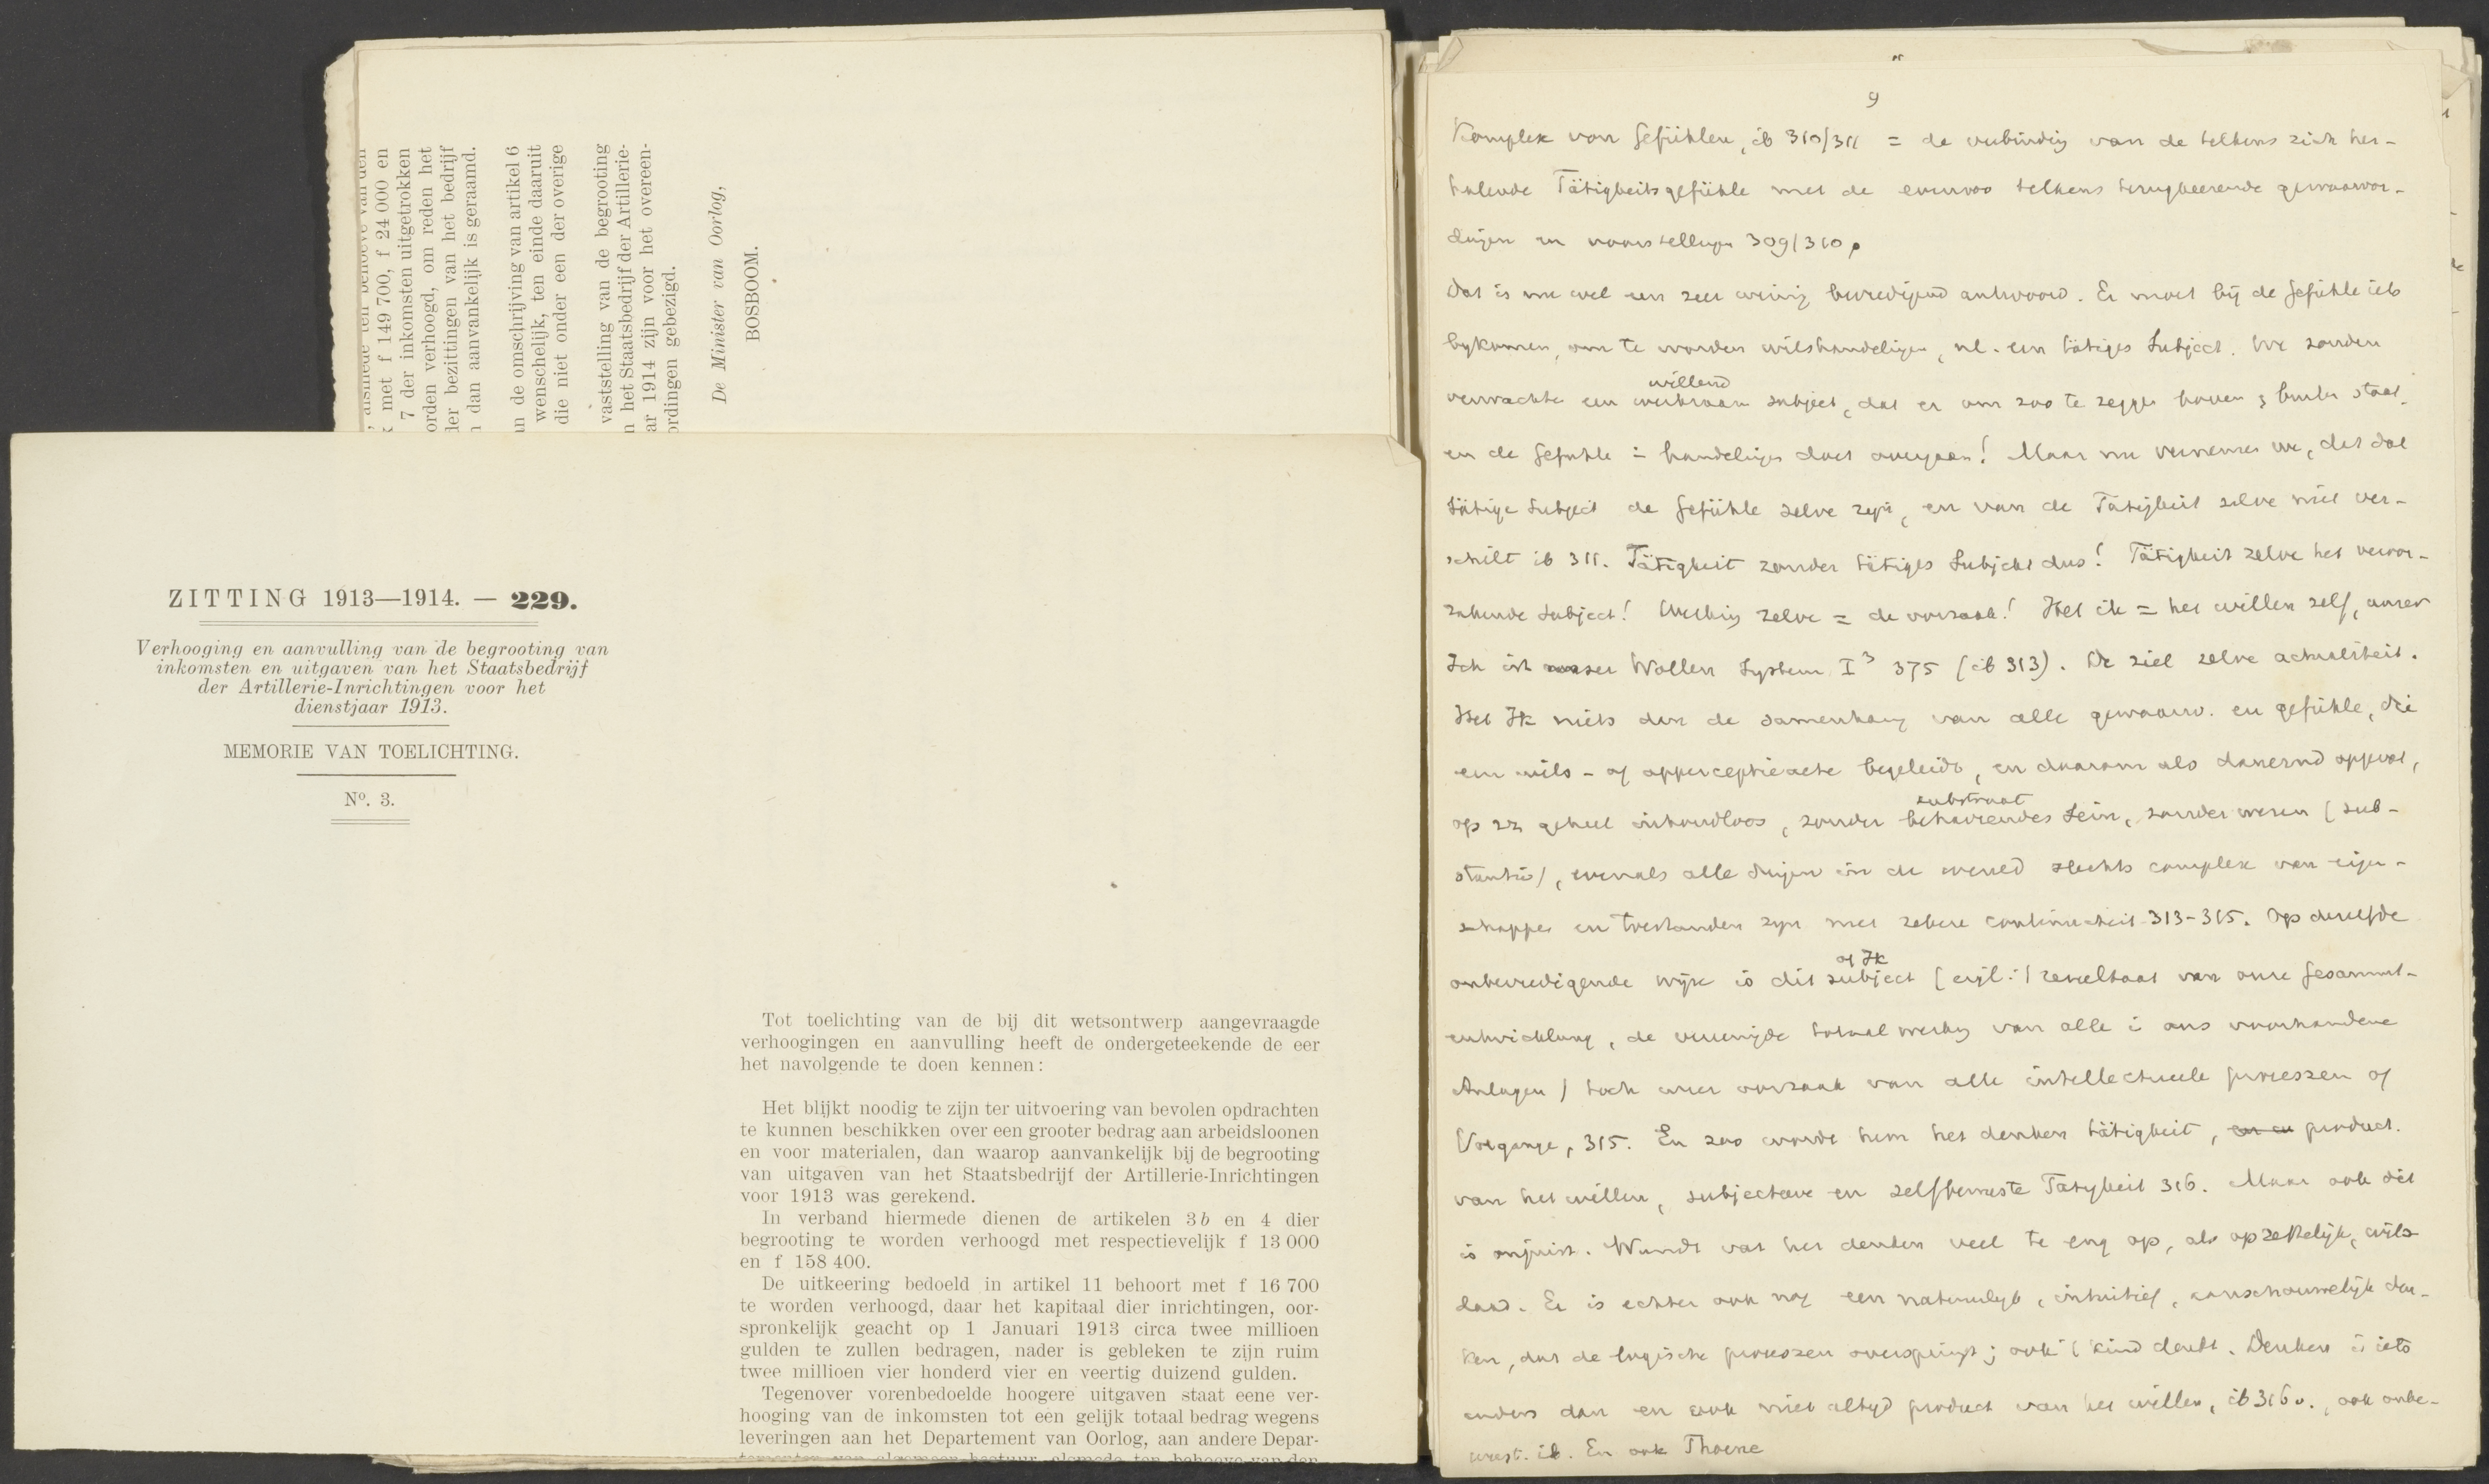 , alsmede ten behoeve van den
k met f 149 700, f 24 000 en
7 der inkomsten uitgetrokken
orden verhoogd, om reden het
der bezittingen van het bedrijf
n dan aanvankelijk is geraamd.
an de omschrijving van artikel 6
wenschelijk, ten einde daaruit
die niet onder een der overige
vaststelling van de begrooting
n het Staatsbedrijf der Artillerie-
ar 1914 zijn voor het overeen-
ordingen gebezigd.
De Minister van Oorlog,
BOSBOOM.
ZITTING 1913—1914. — 229.
Verhooging en aanvulling van de begrooting van
inkomsten en uitgaven van het Staatsbedrijf
der Artillerie-Inrichtingen voor het
dienstjaar 1913.
MEMORIE VAN TOELICHTING.
Nº. 3.
Tot toelichting van de bij dit wetsontwerp aangevraagde
verhoogingen en aanvulling heeft de ondergeteekende de eer
het navolgende te doen kennen:
Het blijkt noodig te zijn ter uitvoering van bevolen opdrachten
te kunnen beschikken over een grooter bedrag aan arbeidsloonen
en voor materialen, dan waarop aanvankelijk bij de begrooting
van uitgaven van het Staatsbedrijf der Artillerie-Inrichtingen
voor 1913 was gerekend.
In verband hiermede dienen de artikelen 3b en 4 dier
begrooting te worden verhoogd met respectievelijk f 13 000
en f 158 400.
De uitkeering bedoeld in artikel 11 behoort met f 16 700
te worden verhoogd, daar het kapitaal dier inrichtingen, oor-
spronkelijk geacht op 1 Januari 1913 circa twee millioen
gulden te zullen bedragen, nader is gebleken te zijn ruim
twee millioen vier honderd vier en veertig duizend gulden.
Tegenover vorenbedoelde hoogere uitgaven staat eene ver-
hooging van de inkomsten tot een gelijk totaal bedrag wegens
leveringen aan het Departement van Oorlog, aan andere Depar-
tementen van algemeen bestuur, alsmede ten behoeve van den
9
Komplex von Gefühlen, ib 310/311 = de verbinding van de telkens zich her-
halende Tätigkeitsgefühle met de evenzoo telkens terugkeerende gewaarwor-
dingen en voorstellingen 309/310.
Dat is nu wel een zeer weinig bevredigend antwoord. Er moet bij de Gefühle iets
bykomen, om te worden wilshandelingen, nl. een tätiges Subject. We zouden
willend
verwachten een werkzaam subject, dat er om zoo te zeggen boven en buiten staat,
en de Gefühle in handelingen doet overgaan! Maar nu vernemen we, dat dat
tätige Subject de Gefühle zelve zijn, en van de Tätigkeit zelve niet ver-
schilt ib 311. Tätigkeit zonder tätiges Subject dus! Tätigkeit zelve het veroor-
zakende subject! Werking zelve = de oorzaak! Het ik = het willen zelf, unser
Ich ist unser Wollen System I³ 375 (ib 313). De ziel zelve actualiteit.
Het Ik niets dan de samenhang van alle gewaarw. en gefühle, die
een wils- of apperceptieacte begeleidt, en daarom als dauernd opgevat,
substraat
op zz geheel inhoudloos, zonder beharrendes Sein, zonder wezen (sub-
stantie), evenals alle dingen in de wereld slechts complex van eigen-
schappen en toestanden zijn met zekere continuiteit 313-315. Op dezelfde
of Ik
onbevredigende wijze is dit subject (eigl. resultaat van onze Gesammt-
entwicklung, de vereenigde totaalwerking van alle in ons voorhandene
Anlagen) toch weer oorzaak van alle intellectueele processen of
Vorgange, 315. En zoo wordt hem het denken tätigkeit, product.
van het willen, subjectieve en zelfbewuste Tätigkeit 316. Maar ook dit
is onjuist. Wundt vat het denken veel te eng op, als opzettelijk, wils-
daad. Er is echter ook nog een natuurlijk, intuitief, aanschouwelijk den-
ken, dat de logische processen overspringt; ook 't kind denkt. Denken is iets
anders dan en ook niet altyd product van het willen, ib 316v., ook onbe-
wust. ib. En ook